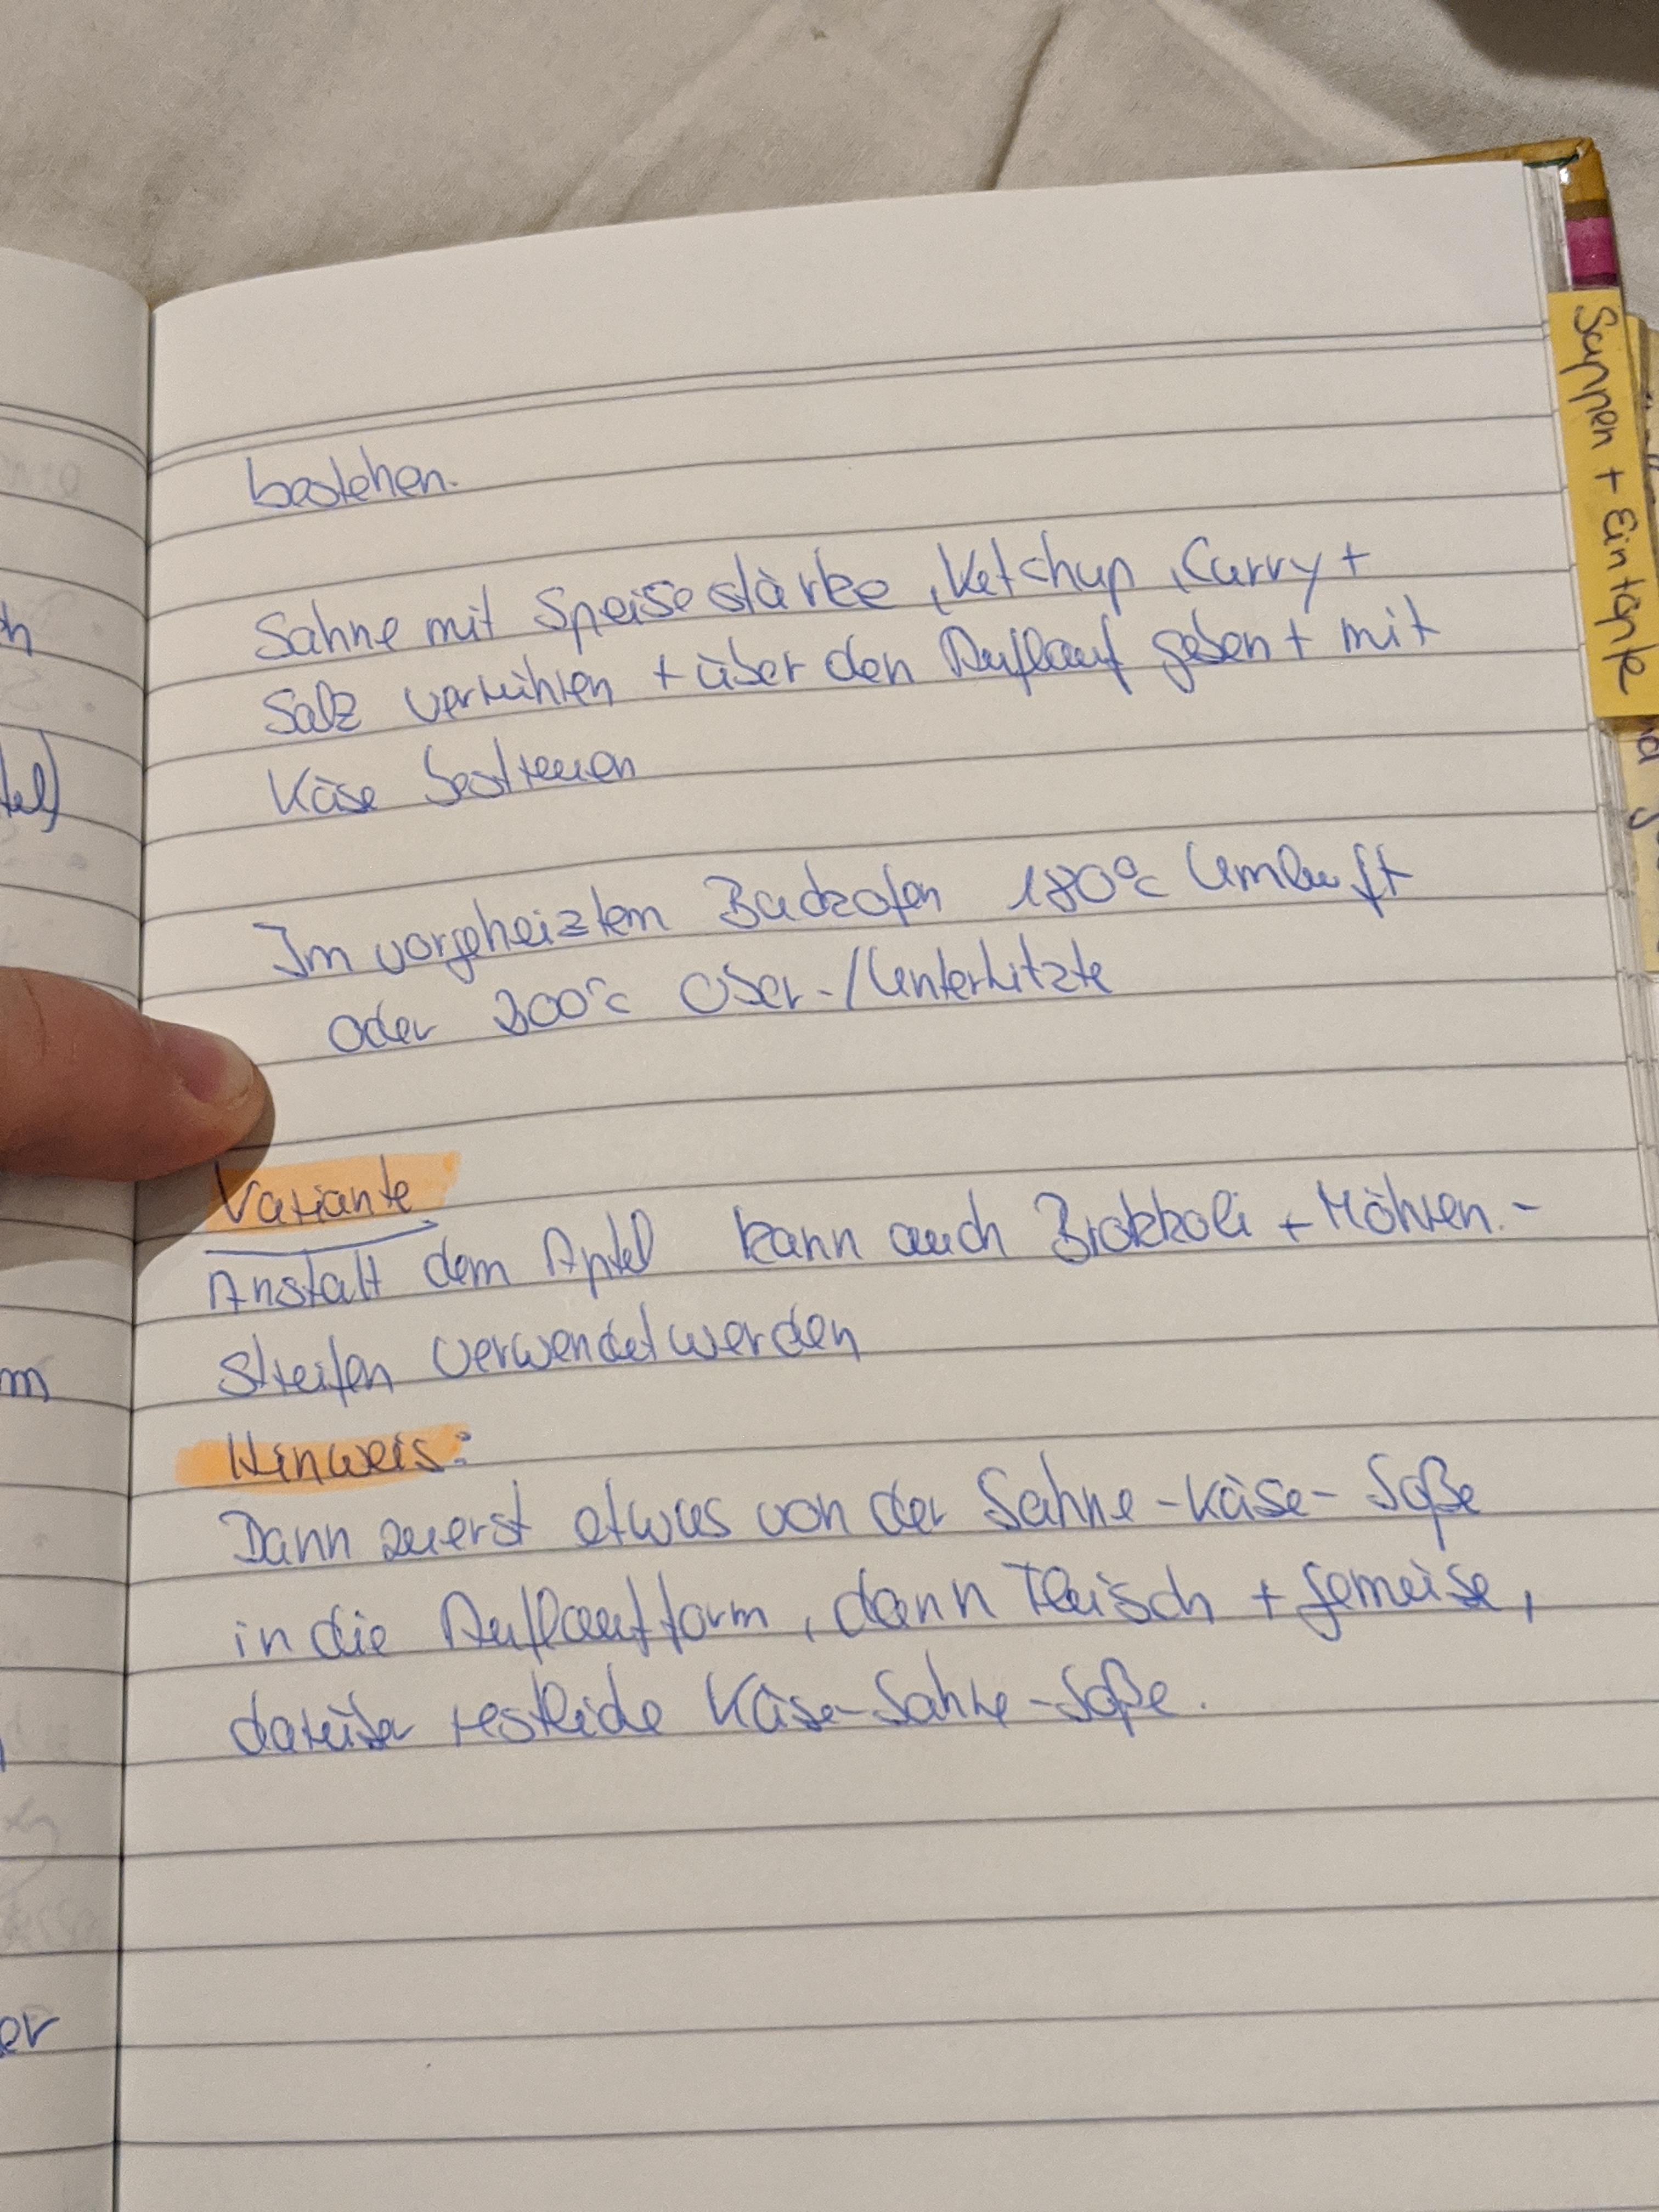 bestehen.
Sahne mit Speisestärke, Ketchup, Curry +
Salz verrühren + über den Auflauf geben + mit
Käse bestreuen
Im vorgeheizten Backofen 180°C Umluft
oder 200°C Ober-/Unterhitzte
Variante
Anstatt dem Apfel kann auch Brokkoli + Möhren.-
streifen verwendet werden
Hinweis:
Dann zuerst etwas von der Sahne-Käse-Soße
in die Auflaufform, dann Fleisch + Gemüse,
darüber restliche Käse-Sahne-Soße.
Suppen + Eintöpfe
h
tel)
m
er